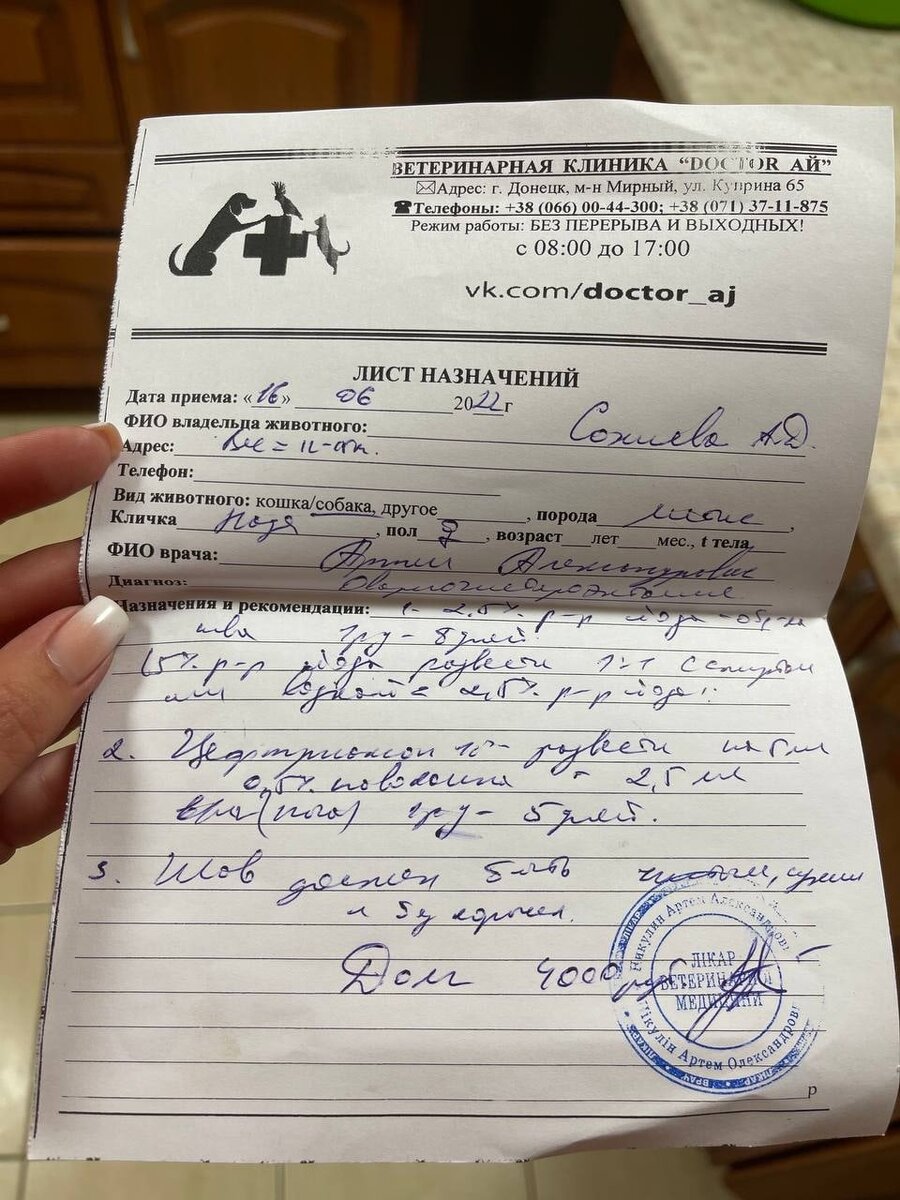 ВЕТЕРИНАРНАЯ КЛИНИКА "DOCTOR АЙ"
Адрес: г. Донецк, м-н Мирный, ул. Куприна 65
Телефоны: +38 (066) 00-44-300; +38 (071) 37-11-875
Режим работы: БЕЗ ПЕРЕРЫВА И ВЫХОДНЫХ!
с 08:00 до 17:00
vk.com/doctor_aj
ЛИСТ НАЗНАЧЕНИЙ
Дата приема: «16» 06 2022г
ФИО владельца животного: А.Д.
Адрес:
Телефон:
Вид животного: кошка/собака, другое , порода ,
Кличка Надя , пол , возраст лет мес., t тела
ФИО врача: Артем Александрович
Диагноз: Овариогистерэктомия
Назначения и рекомендации: 1- 2,5% р-р йода -
шва 1р/ - 8 дней
(5% р-р йода развести 1:1 с спиртом
или водкой = 2,5% р-р йода).
2. Цефтриаксон развести на 5 мл
0,5% новокаина - 2,5 мл
в/м (попа) 1р/ - 5 дней.
3. Шов должен быть чистым, сухим
и без корочек.
Долг 4000 руб.
Никулин Артем Александрович
ЛІКАР
ВЕТЕРИНАРНОЇ
МЕДИЦИНИ
Нікулін Артем Олександрович
ВРАЧ
р